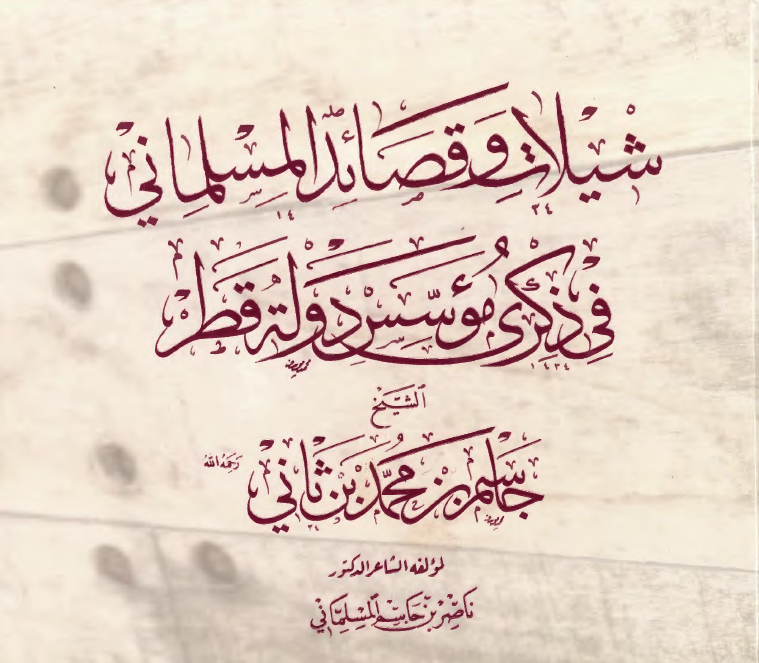 شيلات وقصائد المسلماني
في ذكرى مؤسس دولة قطر
الشيخ
جاسم بن محمد بن ثاني رحمه الله
لمؤلفه الشاعر الدكتور
ناصر بن جاسم المسلماني